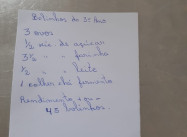 Bolinhos da
3 ovos
1/2 xíc. de açúcar
3 1/2 " " farinha
1/2 " " leite
1 colher chá fermento
Rendimento
45 bolinhos.